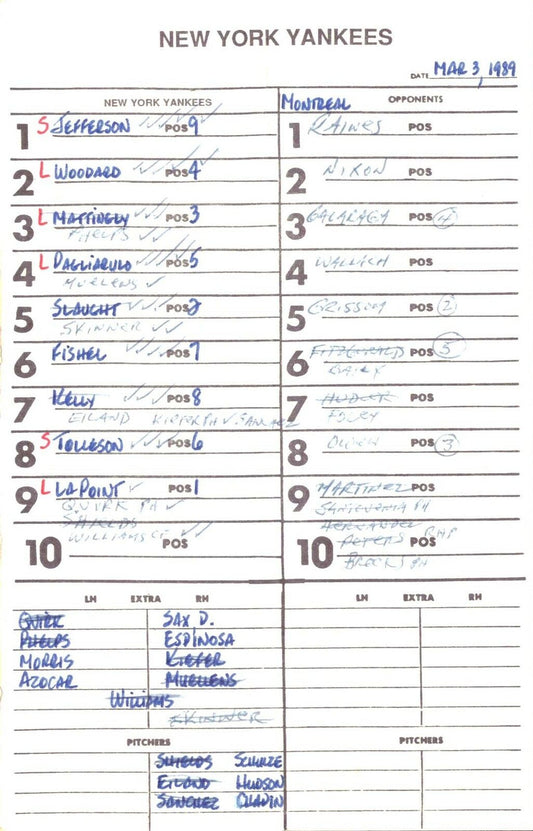 NEW YORK YANKEES
DATE MAR 3, 1989
NEW YORK YANKEES
1 S JEFFERSON POS 9
2 L WOODARD POS 4
3 L MATTINGLY POS 3
PHELPS
4 L PAGLIARULO POS 5
MUELENS
5 SLAUGHT POS 2
SKINNER
6 FISHEL POS 7
7 KELLY POS 8
EILAND KIEFER PH SANCHEZ
8 S TOLLESON POS 6
9 L LAPOINT POS 1
QUIRK PH
SHIELDS
WILLIAMS CF
10 POS
MONTREAL OPPONENTS
1 RAINES POS
2 NIXON POS
3 GALARAGA POS 4
4 WALLACH POS
5 GRISSOM POS 2
6 FITZGERALD POS 5
7 HUDLER POS
FOLEY
8 POS 3
9 MARTINEZ POS
SANTOVENIA PH
HERNANDEZ
10 PETERS POS RHP
LH EXTRA RH
QUIRK SAX D.
PHELPS ESPINOSA
MORRIS KIEFER
AZOCAR MUELLENS
WILLIAMS
SKINNER
PITCHERS
SHIELDS SCHULZE
EILAND HUDSON
SANCHEZ CHAPIN
LH EXTRA RH
PITCHERS